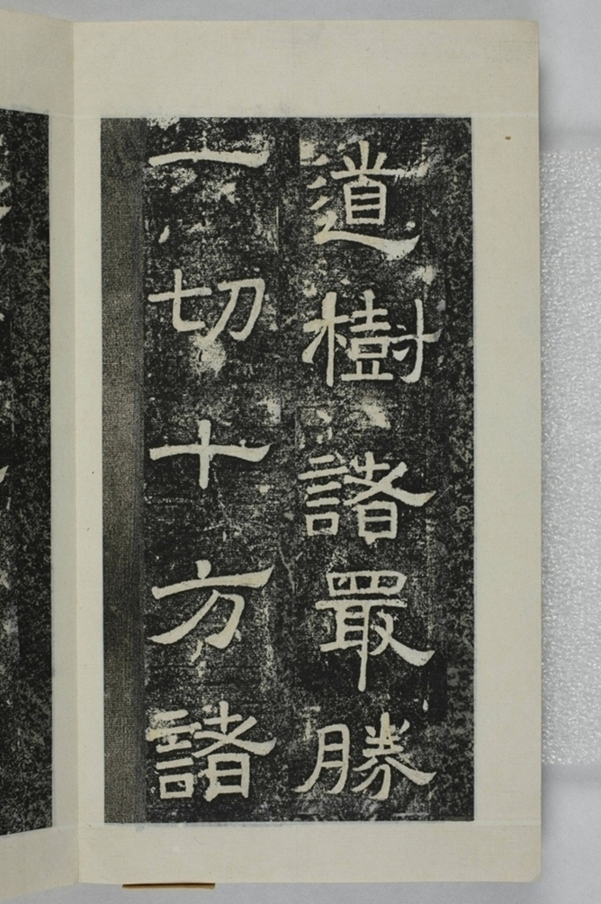 道樹諸冣勝
一切十方諸